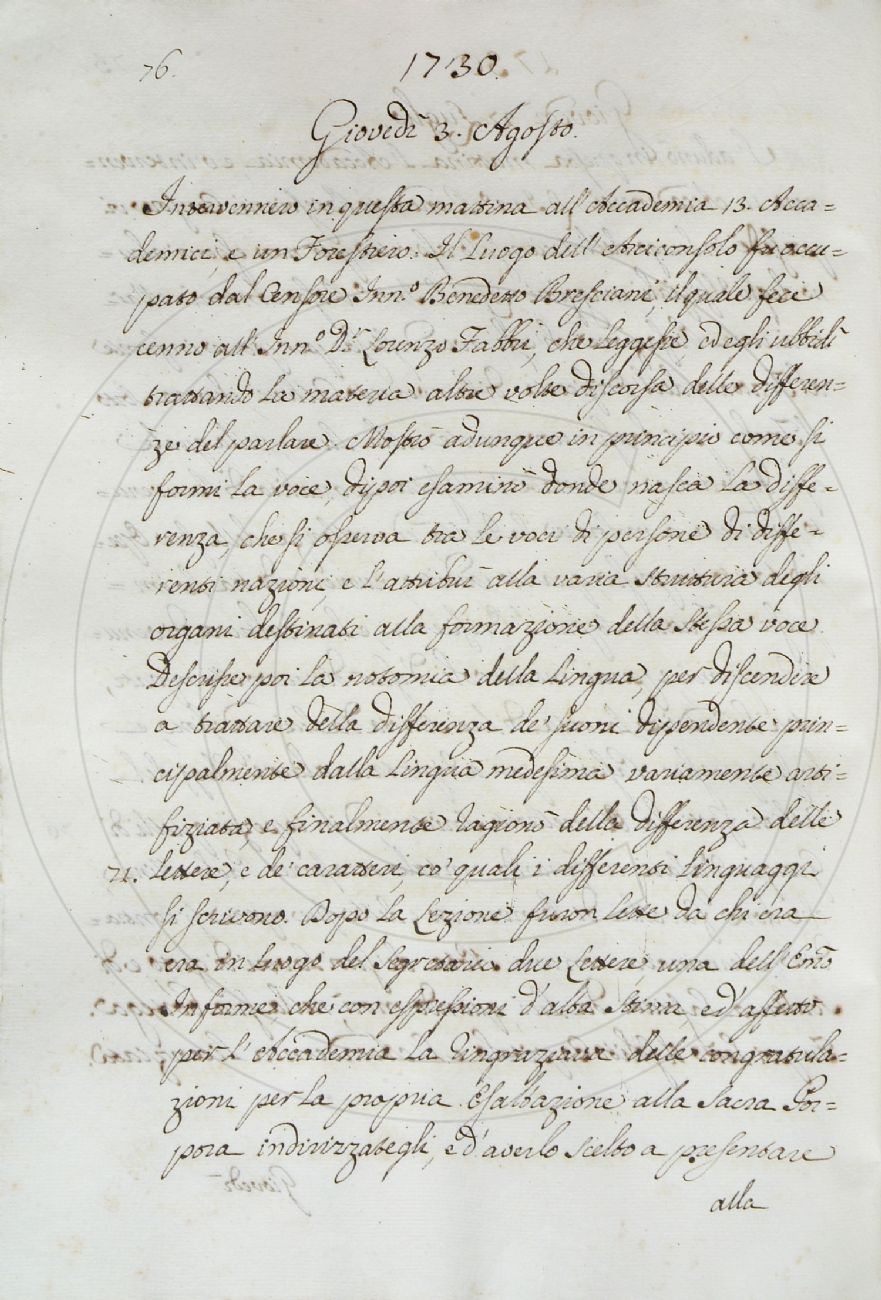 76.
1730.
Giovedì 3. Agosto.
Intervennero in questa mattina all'Accademia 13. Acca=
demici, e un Forestiero. Il Luogo dell'Arciconsolo fu occu=
pato dal Censore Inn.º Benedetto Bresciani, il quale fece
cenno all'Inn.º D.r Lorenzo Fabbri, che leggesse ed egli ubbidì
trattando la materia altre volte discorsa delle differen=
ze del parlare. Mostrò adunque in principio come si
formi la voce, dipoi esaminò donde nasca la diffe=
renza, che si osserva tra le voci di persone di diffe=
renti nazioni, e l'attribuì alla varia struttura degli
organi destinati alla formazione della stessa voce.
Descrisse poi la notomia della Lingua, per discendere
a trattare della differenza de' suoni dipendente prin=
cipalmente dalla Lingua medesima variamente arti=
fiziata, e finalmente ragionò della differenza delle
71. lettere, e de' caratteri, co' quali i differenti Linguaggi
si scrivono. Dopo la Lezione furon lette da chi era
era in luogo del Segretario due Lettere una dell'Em̃o
Informe che con espressioni d'alta stima, ed'affetto
per l'Accademia la ringraziava delle congratula=
zioni per la propria Esaltazione alla Sacra Por=
pora indirizzategli, e d'averlo scelto a presentare
alla